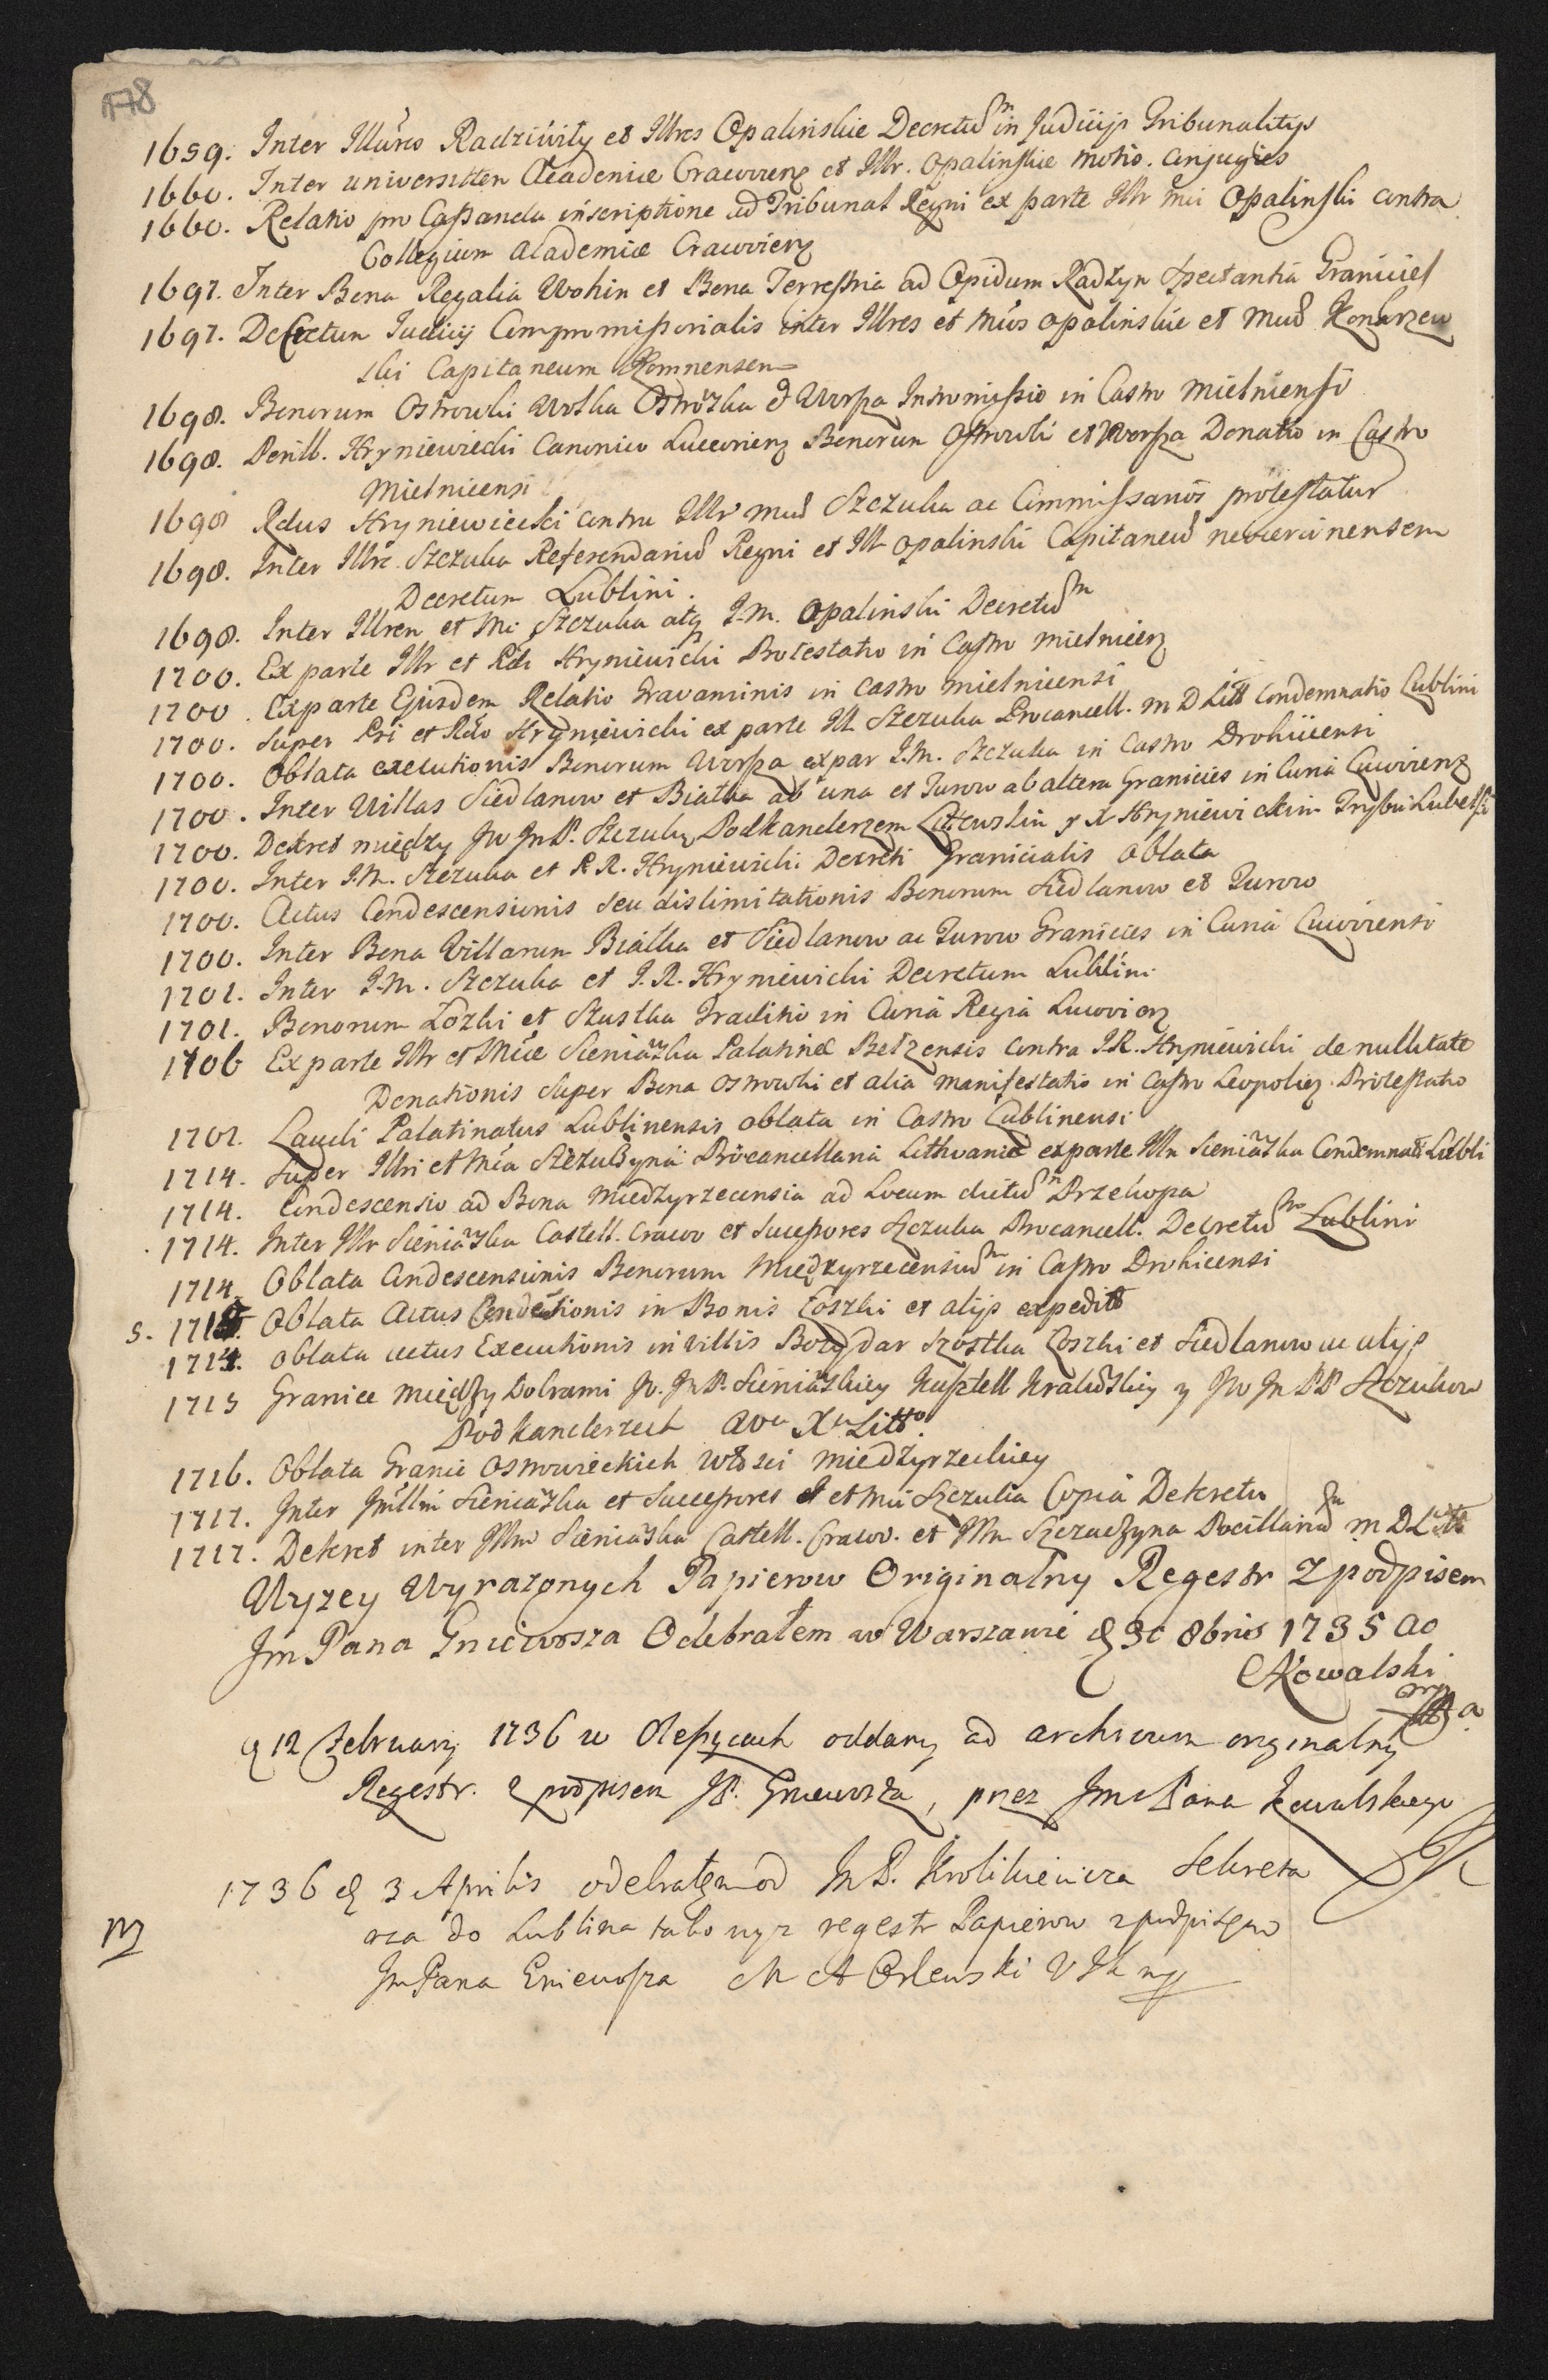 178
1659. Inter Illûres Radziwiły et Illres Opalinskie Decretum in Judicijs Tribunalitijs
1660. Inter universitem Academiæ Cracoviens et Illr. Opalinskie motio. Conjuges
1660. Relatio pro Cassanda inscriptione ad Tribunal Regni ex parte Illr mci Opalinski contra
Collegium Academiæ Cracoviens
1697. Inter Bona Regalia Wohin et Bona Terrestria ad Opidum Radzyn spectantia Granicies
1697. Decretum Judicij Compromissorialis inter Illres et Mcos Opalinskie et Mcum Konarzew
ski Capitaneum
1698. Bonorum Ostrowki Wolka Ostrozka & Worsza Intromissio in Castro Mielniensi
1698. Perill. Hryniewiecki Canonico Luceoriens Bonorum Ostrowki et Worsza Donatio in Castro
Mielnicensi
1698 Rdus Hryniewiecki contra Illr mcum Szczuka ac Commissarios protestatur
1698. Inter Illre Szczuka Referendarium Regni et Ill Opalinski Capitaneum
Decretum Lublini.
1698. Inter Illrem et Mc Szczuka atq J.M. Opalinski Decretum
1700. Ex parte Illr et Rdi Hryniewicki Protestatio in Castro mielnicens
1700. Exparte Ejusdem Relatio Gravaminis in Castro mielnicensi
1700. Super Pri et Rdo Hryniewicki ex parte Ill Szczuka Procancell. M D Litt Condemnatio Lublini
1700. Oblata executionis Bonorum Worsza expar J.M. Szczuka in Castro Drohicensi
1700. Inter Villas Siedlanow et Białka ab una et Turow ab altera Granicies in Curia Luwoviens
1700. Dekret między Jw JmP. Szczuką Podkanclerzem Litewskim y X Hryniewickim Trybu Lubelsk
1700. Inter J.M. Szczuka et P R. Hryniewicki Decreti Granicialis Oblata
1700. Actus Condescensionis seu dislimitationis Bonorum Siedlanow et Turow
1700. Inter Bona Villarum Białka et Siedlanow ac Turow Granicies in Curia Luwoviensi
1701. Inter J.M. Szczuka et J.R. Hryniewicki Decretum Lublini
1701. Bonorum Lozki et Szustka Traditio in Curia Regia Luwoviens
1706 Ex parte Illr et Mcæ Sieniawska Palatinæ Bełzensis contra J.R. Hryniewicki de nullitate
Donationis super Bona Ostrowki et alia manifestatio in Castro Leopoliens Protestatio
1707. Laudi Palatinatus Lublinensis oblata in Castro Lublinensi
1714. Super Illri et Mca Szczuczyna Procancellaria Lithvaniæ exparte Illr Sieniawska Condemnat Lubli
1714. Condescensio ad Bona Miedzyrzecensia ad Locum dictum Przekopa
1714. Inter Illr Sieniawska Castell. Cracov et Sucessores Szczuka Procancell. Decretum Lublini
1714. Oblata Condescensionis Bonorum Międzyrzecensium in Castro Drohicensi
s. 1714. Oblata Actus Condesionis in Bonis Łoszki et alijs expedit
1714. Oblata actus Executionis in villis Bozydar Szostka Łoszki et Siedlanow ac alijs
1715 Granice między Dobrami Jw. JmP. Sieniawskiey Kasztell Krakowskiey y Jw Jm PP Szczukow
Podkanclerzech Wo Xa Litto.
1716. Oblata Granic Ostrowieckich włosci miedzyrzeckiey
1717. Inter Sieniawska et Sucessores J et Mci Szczuka Copia Dekretu
1717. Dekret inter Illm Sieniawska Castell. Cracov. et Illm Szczuczyna Procellariam M D Litt
Wyzey Wyrazonych Papierow Originalny Regestr z podpisem
Jm Pana Gniewosza Odebrałem w Warszawie d 30 8bris 1735 Ao
Kowalski
mp
d 12 February 1736 w Olesycach oddany ad archivum orginalny
Regestr. z podpisem JP. Gniewosza, przez Jmc Pana Kowalskiego
1736 d 3 Aprilis odebrałem od Jm P. Krolikiewicza Sekreta
rza do Lublina takowyz regestr Papierow z podpisem
Jm Pana Gniewosza M A Orlewski mp